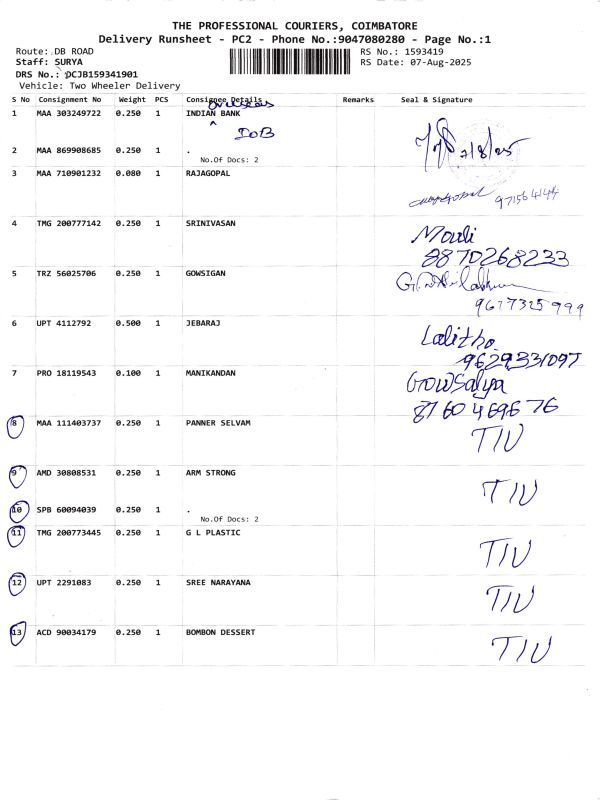 THE PROFESSIONAL COURIERS, COIMBATORE
Delivery Runsheet - PC2 - Phone No.:9047080280 - Page No.:1
Route: DB ROAD RS No.: 1593419
Staff: SURYA RS Date: 07-Aug-2025
DRS No.: DCJB159341901
Vehicle: Two Wheeler Delivery
S No Consignment No Weight PCS Consignee Details Remarks Seal & Signature
overseas
1 MAA 303249722 0.250 1 INDIAN BANK
IOB
7/8/25
2 MAA 869908685 0.250 1 .
No.Of Docs: 2
3 MAA 710901232 0.080 1 RAJAGOPAL
4 TMG 200777142 0.250 1 SRINIVASAN
Mouli
8870268233
5 TRZ 56025706 0.250 1 GOWSIGAN
9677325999
6 UPT 4112792 0.500 1 JEBARAJ
Lalitha
9629331097
7 PRO 18119543 0.100 1 MANIKANDAN
Gowsalya
8760469676
8 MAA 111403737 0.250 1 PANNER SELVAM
TIU
9 AMD 30808531 0.250 1 ARM STRONG
TIU
10 SPB 60094039 0.250 1 .
No.Of Docs: 2
11 TMG 200773445 0.250 1 G L PLASTIC
TIU
12 UPT 2291083 0.250 1 SREE NARAYANA
TIU
13 ACD 90034179 0.250 1 BOMBON DESSERT
TIU